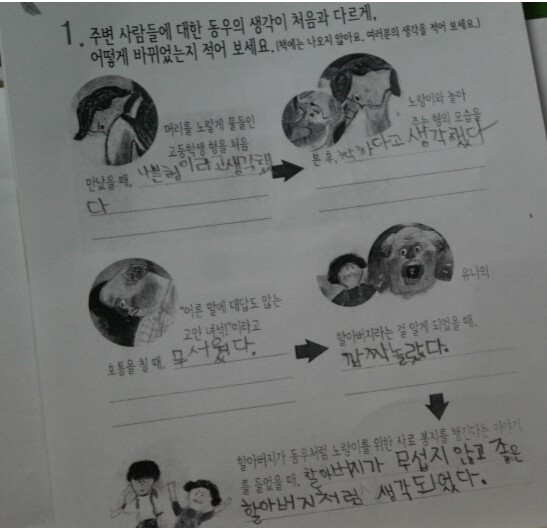 1. 주변 사람들에 대한 동우의 생각이 처음과 다르게,
어떻게 바뀌었는지 적어 보세요. (책에는 나오지 않아요. 여러분의 생각을 적어 보세요.)
머리를 노랗게 물들인
고등학생 형을 처음
만났을 때, 나쁜형이라고생각했
다
노랑이와 놀아
주는 형의 모습을
본 후, 착하다고 생각했다
"어른 말에 대답도 않는
고얀 녀석!"이라고
호통을 칠 때, 무서웠다.
유나의
할아버지라는 걸 알게 되었을 때,
깜짝놀랐다.
할아버지가 동우처럼 노랑이를 위한 사료 봉지를 챙긴다는 이야기
를 들었을 때, 할아버지가 무섭지 않고 좋은
할아버지처럼 생각되었다.